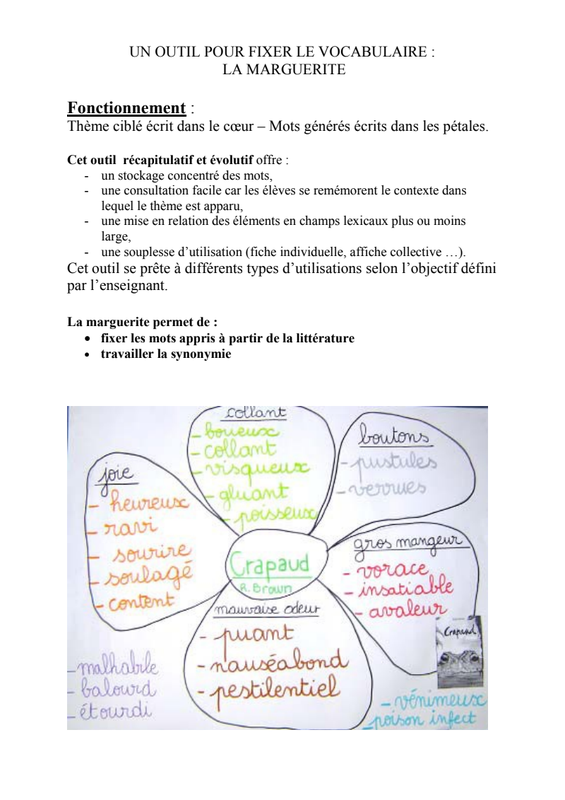 UN OUTIL POUR FIXER LE VOCABULAIRE :
LA MARGUERITE
Fonctionnement :
Thème ciblé écrit dans le cœur – Mots générés écrits dans les pétales.
Cet outil récapitulatif et évolutif offre :
- un stockage concentré des mots,
- une consultation facile car les élèves se remémorent le contexte dans
lequel le thème est apparu,
- une mise en relation des éléments en champs lexicaux plus ou moins
large,
- une souplesse d’utilisation (fiche individuelle, affiche collective …).
Cet outil se prête à différents types d’utilisations selon l’objectif défini
par l’enseignant.
La marguerite permet de :
• fixer les mots appris à partir de la littérature
• travailler la synonymie
collant
- boueux
- collant
- visqueux
- gluant
- poisseux
boutons
- pustules
- verrues
joie
- heureux
- ravi
- sourire
- soulagé
- content
gros mangeur
- vorace
- insatiable
- avaleur
Crapaud
R. Brown
mauvaise odeur
- puant
- nauséabond
- pestilentiel
Crapaud
- malhabile
- balourd
- étourdi
- vénimeux
poison infect